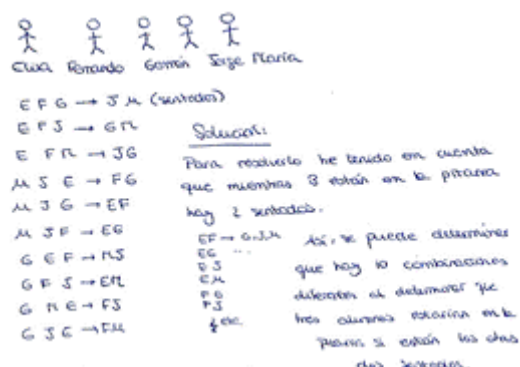 Elisa Fernando Germán Jorge María
E F G → J M (sentados)
E F J → G M
E F M → J G
M J E → F G
M J G → E F
M J F → E G
G E F → M J
G F J → E M
G M E → F J
G J E → F M
Solución:
Para resolverlo he tenido en cuenta
que mientras 3 están en la pizarra
hay 2 sentados.
EF → G.J.M
EG "
EJ
EM
FG
FJ
etc.
Así, se puede determinar
que hay 10 combinaciones
diferentes al determinar que
tres alumnos estarían en la
pizarra si están los otros
dos sentados